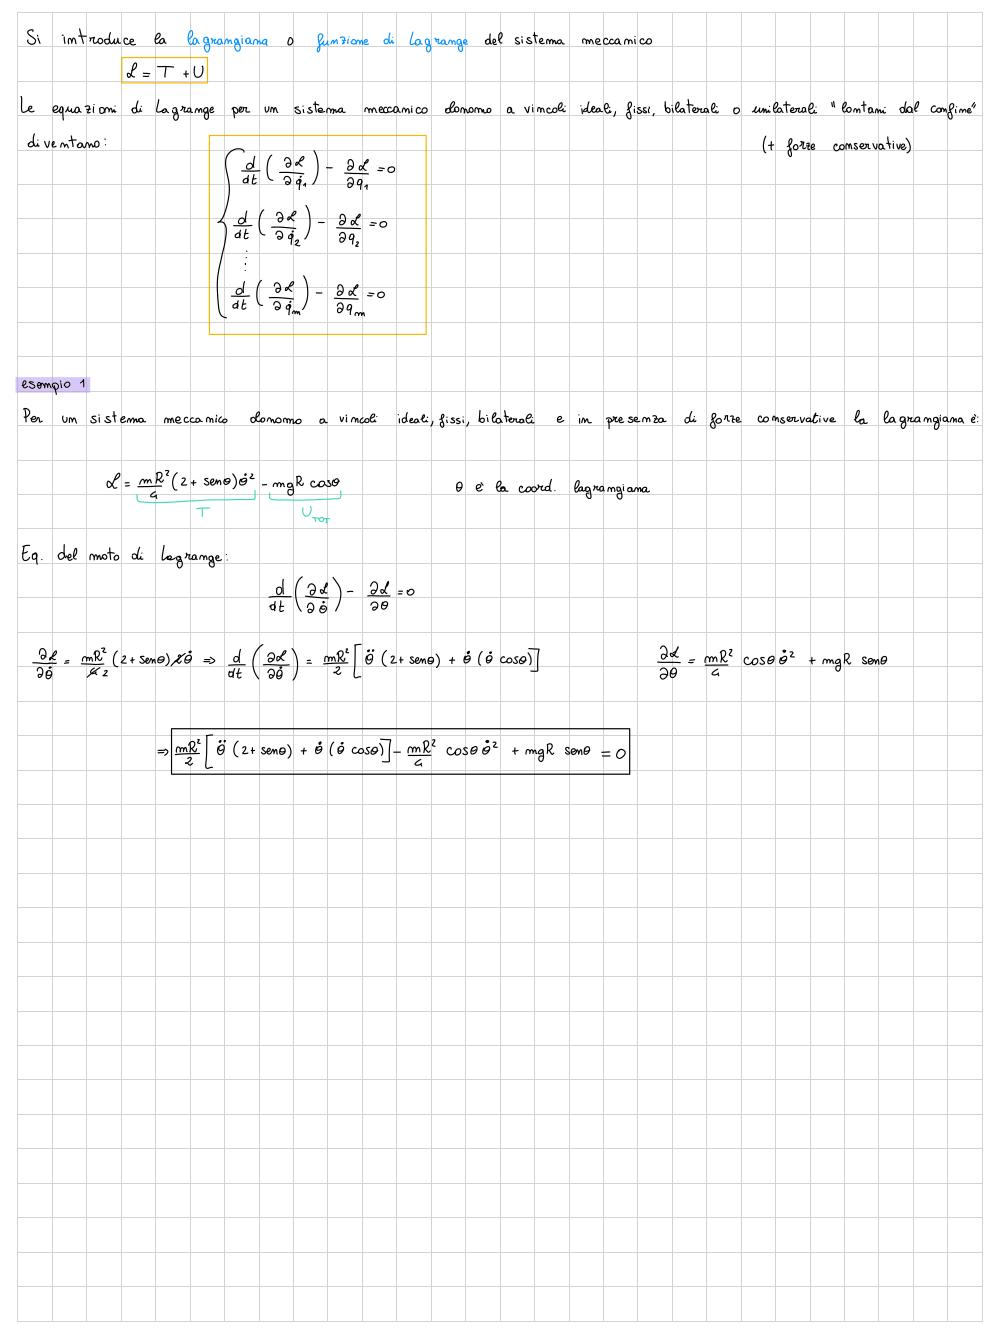 Si introduce la lagrangiana o funzione di Lagrange del sistema meccanico
ℒ = T + U
Le equazioni di Lagrange per un sistema meccanico olonomo a vincoli ideali, fissi, bilaterali o unilaterali "lontani dal confine"
diventano: (+ forze conservative)
d/dt (∂ℒ/∂q̇₁) − ∂ℒ/∂q₁ = 0
d/dt (∂ℒ/∂q̇₂) − ∂ℒ/∂q₂ = 0
⋮
d/dt (∂ℒ/∂q̇ₙ) − ∂ℒ/∂qₙ = 0
esempio 1
Per un sistema meccanico olonomo a vincoli ideali, fissi, bilaterali e in presenza di forze conservative la lagrangiana è:
ℒ = mR²/4 (2 + senθ) θ̇² − mgR cosθ θ è la coord. lagrangiana
T U_TOT
Eq. del moto di Lagrange:
d/dt (∂ℒ/∂θ̇) − ∂ℒ/∂θ = 0
∂ℒ/∂θ̇ = mR²/4 2 (2 + senθ) 2θ̇ ⇒ d/dt (∂ℒ/∂θ̇) = mR²/2 [θ̈ (2 + senθ) + θ̇ (θ̇ cosθ)] ∂ℒ/∂θ = mR²/4 cosθ θ̇² + mgR senθ
⇒ mR²/2 [θ̈ (2 + senθ) + θ̇ (θ̇ cosθ)] − mR²/4 cosθ θ̇² + mgR senθ = 0